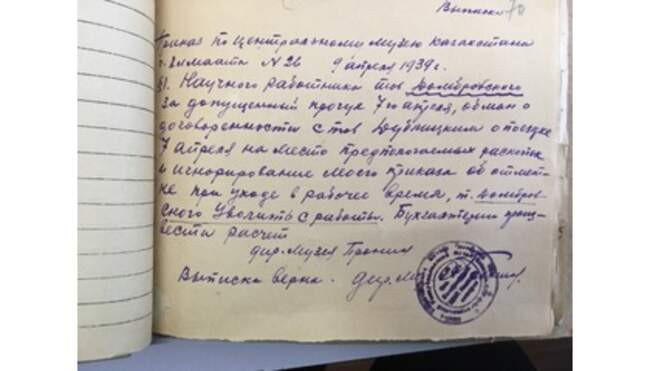 Выписка 70
Приказ по Центральному Музею Казахстана
г. Алмаата N 26 9 апреля 1939 г.
§1. Научного работника тов Домбровского
за допущенный прогул 7го апреля, обман о
договоренности с тов Дублицким о поездке
7 апреля на место предпологаемых раскопок
и игнорирование моего приказа об отмет-
ке при уходе в рабочее время, т. Домбров-
ского Уволить с работы. Бухгалтерии произ-
вести расчет
дир. Музея Пронин
Выписка верна. дир.